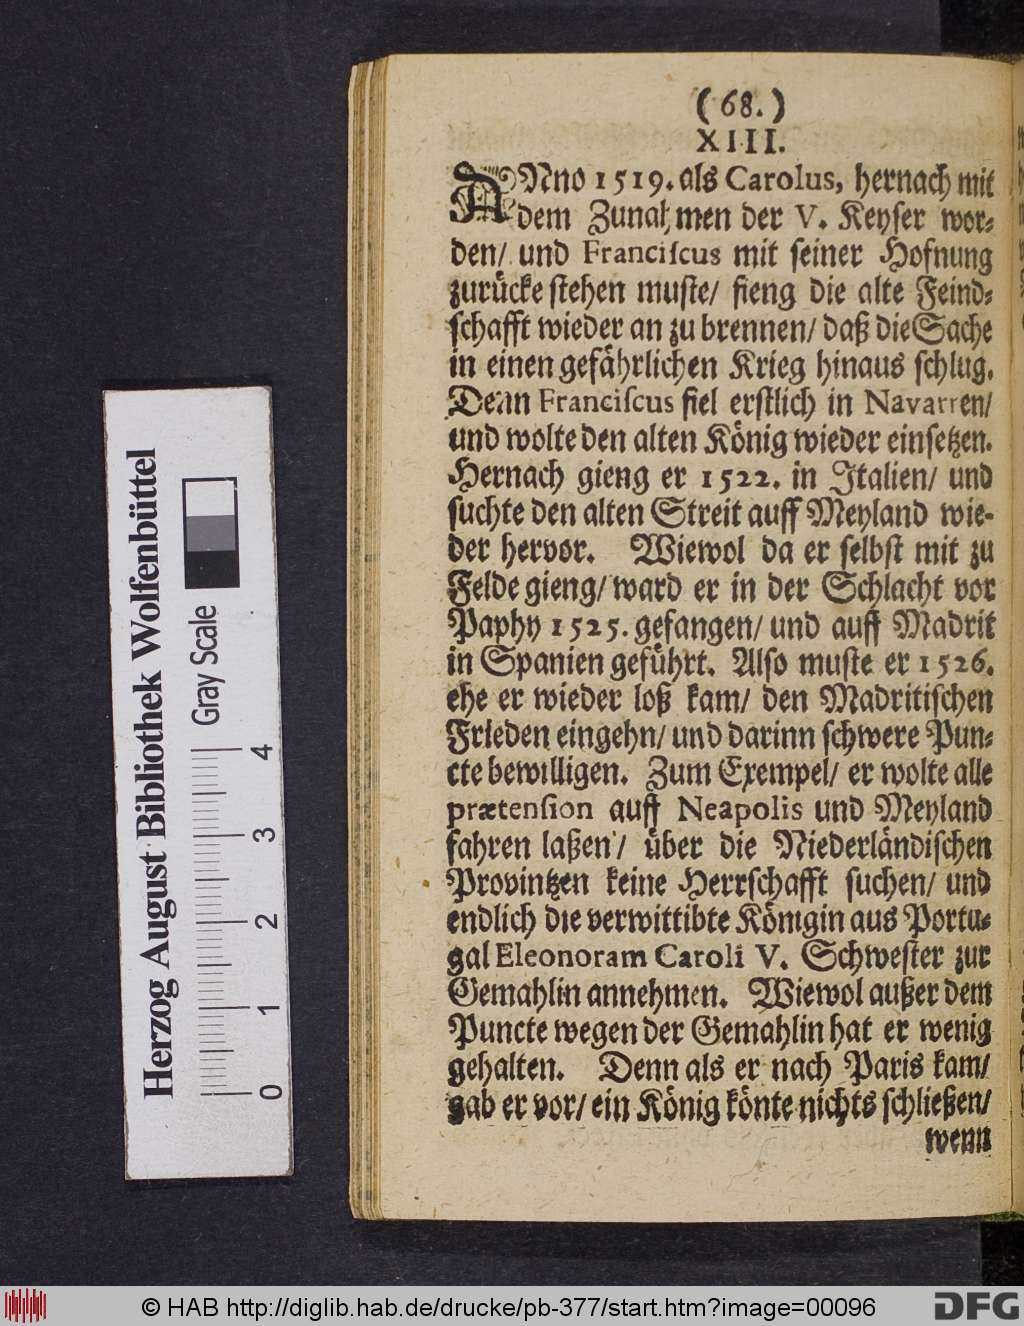 (68.)
XIII.
ANno 1519. als Carolus, hernach mit
dem Zunahmen der V. Keyser wor-
den/ und Franciſcus mit ſeiner Hofnung
zurücke ſtehen muſte/ fieng die alte Feind-
ſchafft wieder an zu brennen/ daß die Sache
in einen gefährlichen Krieg hinaus ſchlug.
Denn Franciſcus fiel erſtlich in Navarren/
und wolte den alten König wieder einſetzen.
Hernach gieng er 1522. in Italien/ und
ſuchte den alten Streit auff Meyland wie-
der hervor. Wiewol da er ſelbſt mit zu
Felde gieng/ ward er in der Schlacht vor
Paphy 1525. gefangen/ und auff Madrit
in Spanien geführt. Alſo muſte er 1526.
ehe er wieder loß kam/ den Madritiſchen
Frieden eingehn/ und darinn ſchwere Pun-
cte bewilligen. Zum Exempel/ er wolte alle
prætenſion auff Neapolis und Meyland
fahren laßen/ über die Niederländiſchen
Provintzen keine Herrſchafft ſuchen/ und
endlich die verwittibte Königin aus Portu-
gal Eleonoram Caroli V. Schweſter zur
Gemahlin annehmen. Wiewol außer dem
Puncte wegen der Gemahlin hat er wenig
gehalten. Denn als er nach Paris kam/
gab er vor/ ein König könte nichts ſchließen/
wenn
Herzog August Bibliothek Wolfenbüttel
Gray Scale
0 1 2 3 4
© HAB http://diglib.hab.de/drucke/pb-377/start.htm?image=00096
DFG